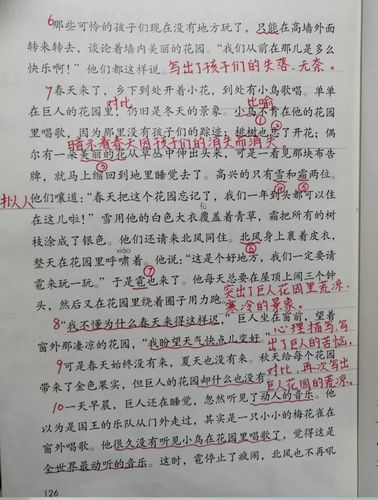 6那些可怜的孩子们现在没有地方玩了，只能在高墙外面
转来转去，谈论着墙内美丽的花园。“我们从前在那儿是多么
快乐啊！”他们都这样说。写出了孩子们的失落、无奈。
7春天来了，乡下到处开着小花，到处有小鸟歌唱。单单
对比
比喻
在巨人的花园里，仍旧是冬天的景象。小鸟不肯在他的花园
①
里唱歌，因为那里没有孩子们的踪迹；桃树也忘了开花；偶
暗示着春天因孩子们的消失而消失。
②
尔有一朵美丽的花从草丛中伸出头来，可是一看见那块布告
③
牌，就马上缩回到地里睡觉去了。高兴的只有雪和霜两位。
拟人
④
⑤
他们嚷道：“春天把这个花园忘记了，我们一年到头都可以住
fù
在这儿啦！”雪用他的白色大衣覆盖着青草，霜把所有的树
枝涂成了银色。他们还请来北风同住。北风身上裹着皮衣，
xiào
⑥
整天在花园里呼啸着。他说：“这是个好地方，我们一定要请
雹来玩一玩。”于是雹也来了。他每天总要在屋顶上闹三个钟
⑦
突出了巨人花园里荒凉、
头，然后又在花园里绕着圈子用力跑。
寒冷的景象。
8“我不懂为什么春天来得这样迟，”巨人坐在窗前，望着
窗外那凄凉的花园，“我盼望天气快点儿变好。”
心理描写，写
出了巨人的苦恼。
9可是春天始终没有来，夏天也没有来。秋天给每个花园
带来了金色果实，但巨人的花园却什么也没有
对比，再次写出
巨人花园的荒凉。
10一天早晨，巨人还在睡觉，忽然听见了动人的音乐。他
以为是国王的乐队从门外走过，其实是一只小小的梅花雀在
窗外唱歌。他很久没有听见小鸟在花园里唱歌了，觉得这是
全世界最动听的音乐。这时，雹停止了疯闹，北风也不再吼
126